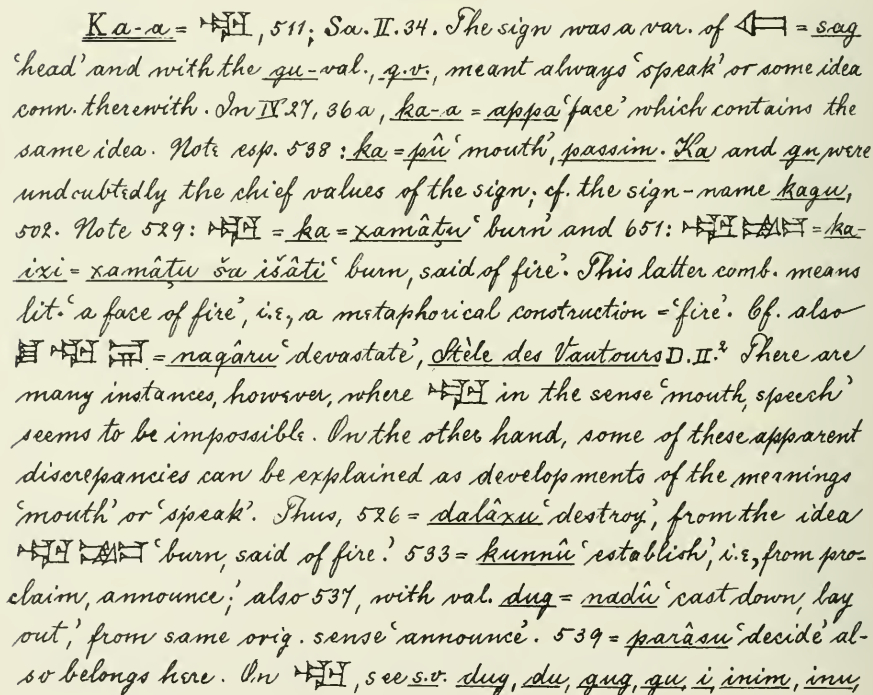 Ka-a = 𒅗, 511; Sa. II. 34. The sign was a var. of 𒊕 = sag
‘head’ and with the gu-val., q.v., meant always ‘speak’ or some idea
conn. therewith. In IV 27, 36a, ka-a = appa ‘face’ which contains the
same idea. Note esp. 538: ka = pû ‘mouth’, passim. Ka and gu were
undoubtedly the chief values of the sign; cf. the sign-name kagu,
502. Note 529: 𒅗 = ka = xamâṭu ‘burn’ and 651: 𒅗𒉈 = ka-
ixi = xamâṭu ša išâti ‘burn, said of fire’. This latter comb. means
lit. ‘a face of fire’, i.e., a metaphorical construction = ‘fire’. Cf. also
𒅗 = nagâru ‘devastate’, Stèle des Vautours D. II.² There are
many instances, however, where 𒅗 in the sense ‘mouth, speech’
seems to be impossible. On the other hand, some of these apparent
discrepancies can be explained as developments of the meanings
‘mouth’ or ‘speak’. Thus, 526 = dalâxu ‘destroy’, from the idea
𒅗𒉈 ‘burn, said of fire.’ 533 = kunnû ‘establish’, i.e., from pro-
claim, announce;’ also 537, with val. dug = nadû ‘cast down, lay
out,’ from same orig. sense ‘announce’. 539 = parâsu ‘decide’ al-
so belongs here. On 𒅗, see s.v. dug, du, gug, gu, i, inim, inu,